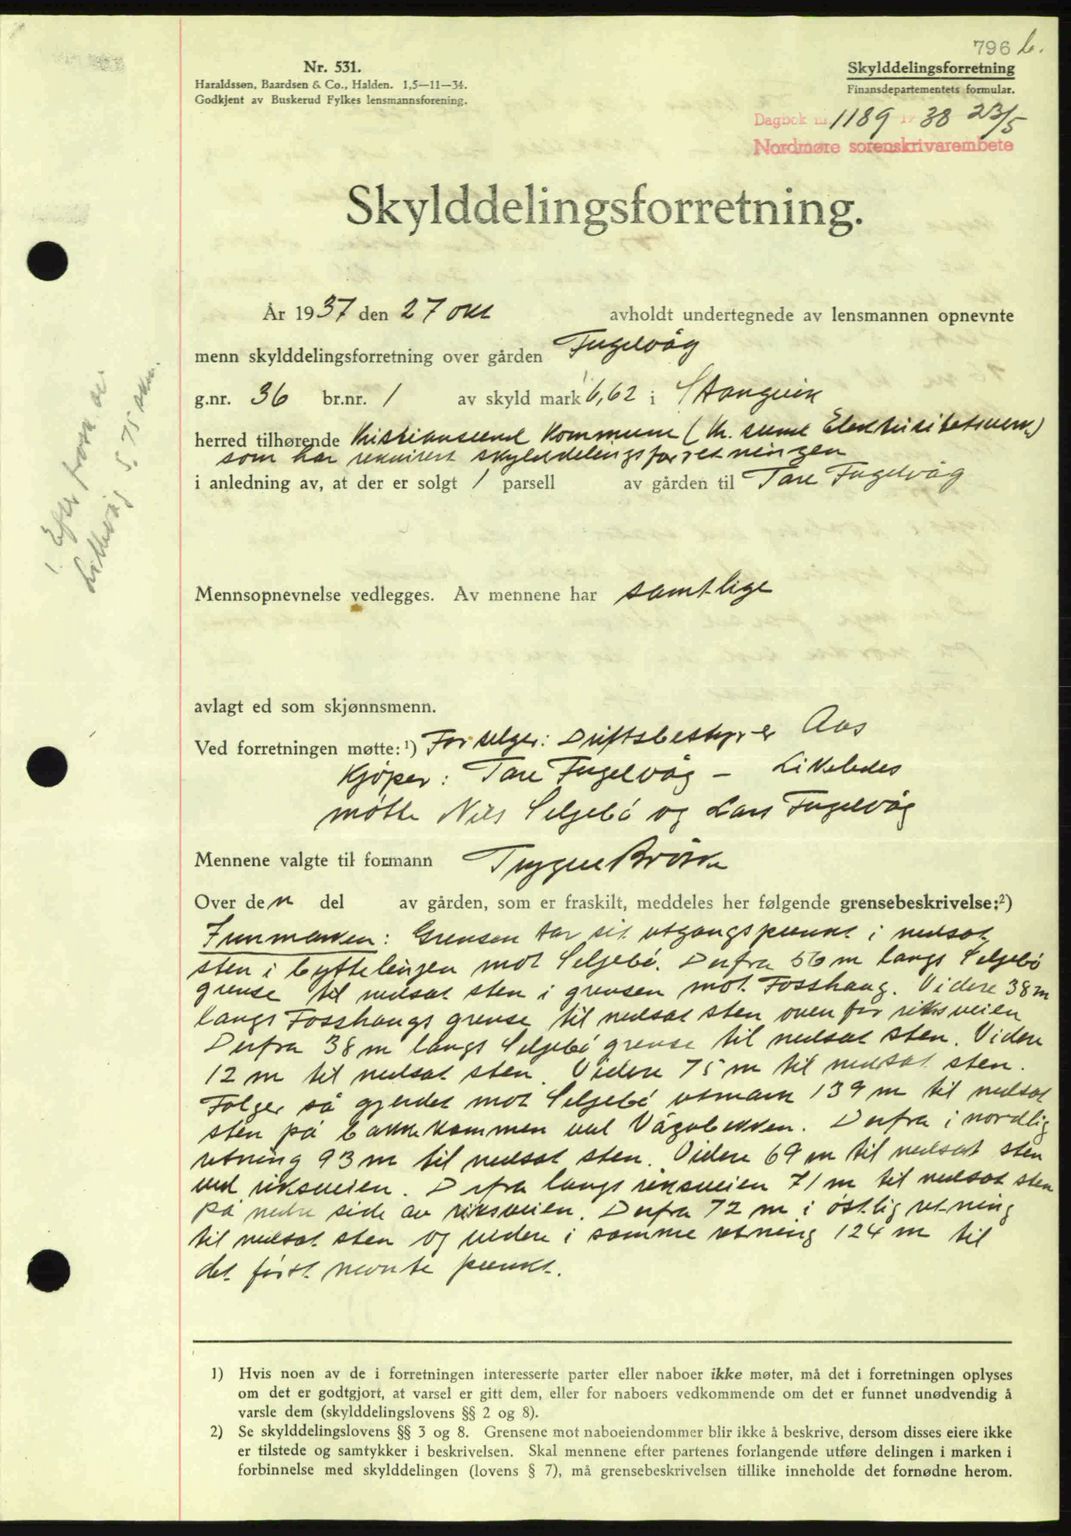 796 b.
Nr. 531.
Haraldssøn, Baardsen & Co., Halden. 1,5—11—34.
Godkjent av Buskerud Fylkes lensmannsforening.
Skylddelingsforretning
Finansdepartementets formular.
Dagbok nr. 1189 19 38 23/5
Nordmøre sorenskrivarembete
Skylddelingsforretning.
År 1937 den 27 okt avholdt undertegnede av lensmannen opnevnte
menn skylddelingsforretning over gården Fugelvåg
g.nr. 36 br.nr. 1 av skyld mark 6,62 i Stangvik
herred tilhørende Kristiansund Kommune (Kr. sund Elektrisitetsverk)
som har rekvirert skylddelingsforretningen
i anledning av, at der er solgt 1 parsell av gården til Tore Fugelvåg
Mennsopnevnelse vedlegges. Av mennene har samtlige
avlagt ed som skjønnsmenn.
Ved forretningen møtte: ¹) For selger: Driftsbestyrer Aas
Kjøper: Tore Fugelvåg – Likeledes
møtte Nils Seljebö og Lars Fugelvåg
Mennene valgte til formann Trygve
Over den del av gården, som er fraskilt, meddeles her følgende grensebeskrivelse:²)
Innmarken: Grensen tar sit utgangspunkt i nedsat
sten i byttelinjen mot Seljebö. Derfra 56 m langs Seljebö
grense til nedsat sten i grensen mot Fosshaug. Videre 38 m
langs Fosshaugs grense til nedsat sten ovenfor riksveien
Derfra 38 m langs Seljebö grense til nedsat sten. Videre
12 m til nedsat sten. Videre 75 m til nedsat sten.
Følger så gjerdet mot Seljebö utmark 139 m til nedsat
sten på bakkekammen ved Vågabekken. Derfra i nordlig
retning 93 m til nedsat sten. Videre 69 m til nedsat sten
ved riksveien. Derfra langs riksveien 71 m til nedsat sten
på nedre side av riksveien. Derfra 72 m i östlig retning
til nedsat sten og videre i samme retning 124 m til
det först nevnte punkt.
1) Hvis noen av de i forretningen interesserte parter eller naboer ikke møter, må det i forretningen oplyses
om det er godtgjort, at varsel er gitt dem, eller for naboers vedkommende om det er funnet unødvendig å
varsle dem (skylddelingslovens §§ 2 og 8).
2) Se skylddelingslovens §§ 3 og 8. Grensene mot naboeiendommer blir ikke å beskrive, dersom disses eiere ikke
er tilstede og samtykker i beskrivelsen. Skal mennene efter partenes forlangende utføre delingen i marken i
forbinnelse med skylddelingen (lovens § 7), må grensebeskrivelsen tillike inneholde det fornødne herom.